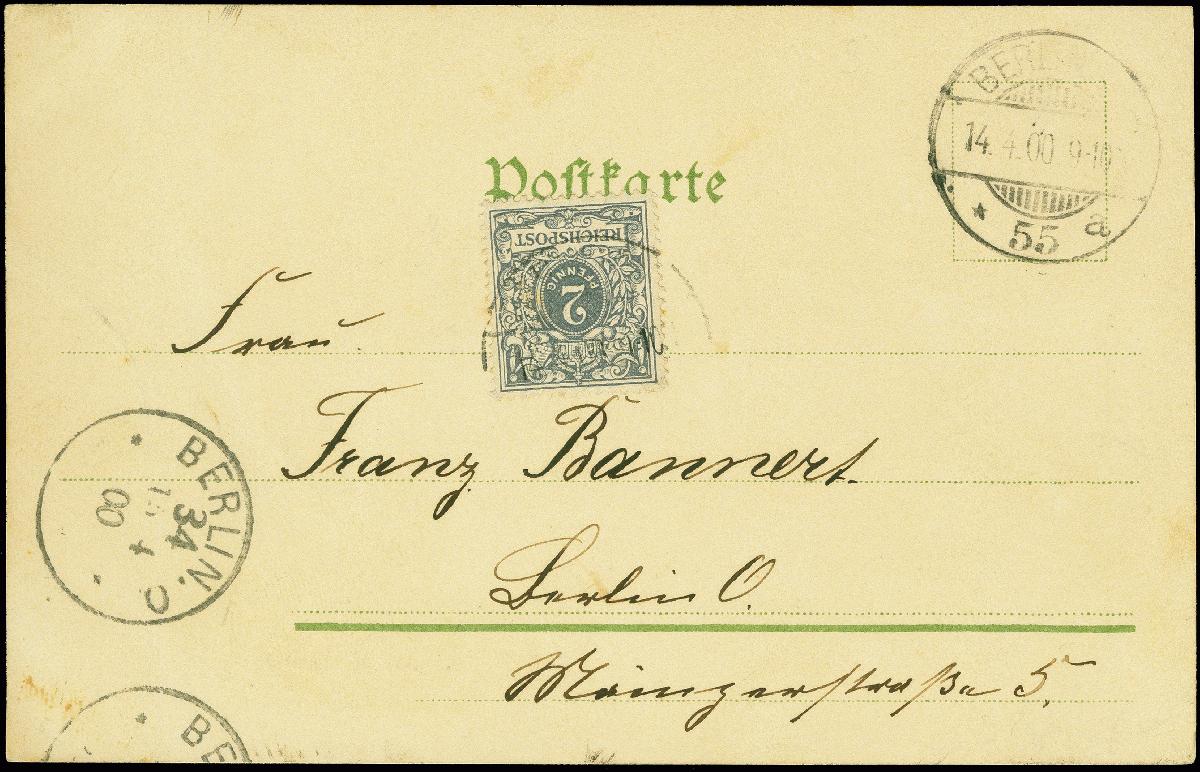 Postkarte
BERLIN
14.4.00 9-10
* 55 a
REICHSPOST
2
PFENNIG
Frau
Franz Bannert.
Berlin O.
Mainzerstraße 5.
BERLIN.O
34
4
00
BE